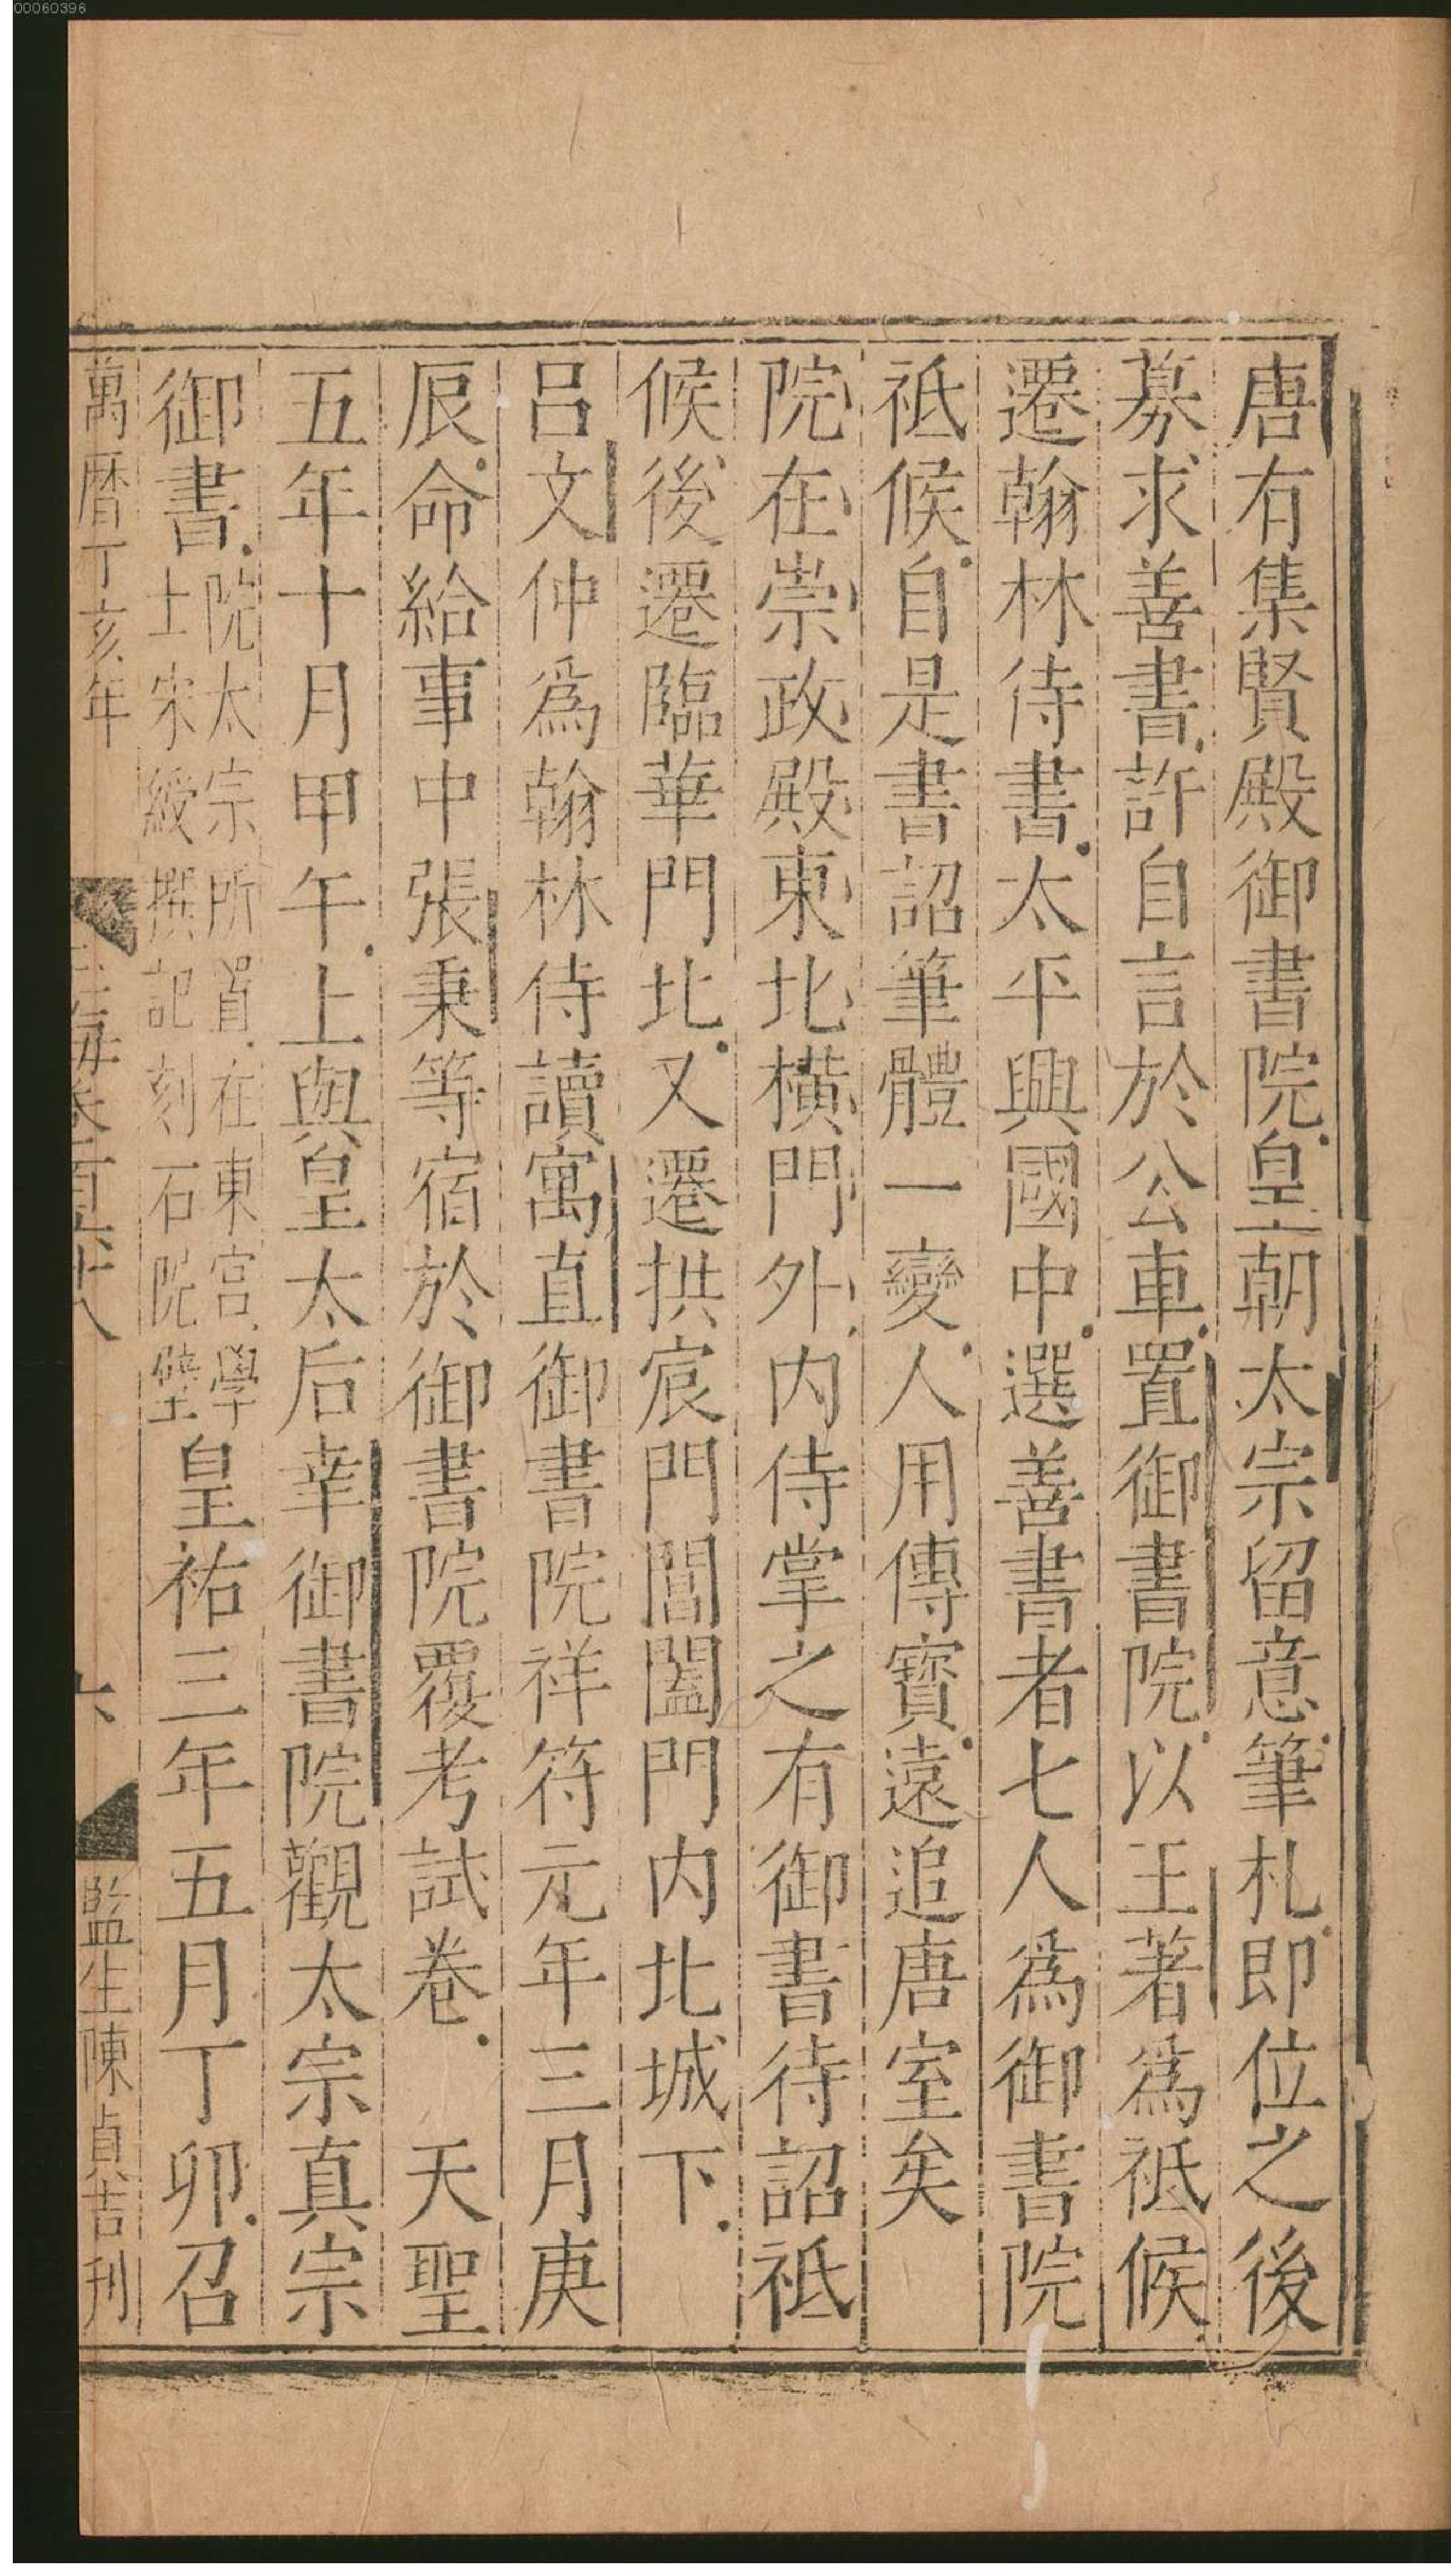 00060396
唐有集賢殿御書院皇朝太宗留意筆札即位之後
募求善書許自言於公車置御書院以王著為祗候
遷翰林侍書太平興國中選善書者七人為御書院
祗候自是書詔筆體一變人用傳寶遠追唐室矣
院在崇政殿東北橫門外內侍掌之有御書待詔祗
候後遷臨華門北又遷拱宸門閶闔門內北城下
呂文仲為翰林侍讀寓直御書院祥符元年三月庚
辰命給事中張秉等宿於御書院覆考試卷　天聖
五年十月甲午上與皇太后幸御書院觀太宗真宗
御書院太宗所置在東宮學士宋綬撰記刻石院壁皇祐三年五月丁卯召
萬曆丁亥年
玉海卷一百六十八
六
監生陳貞吉刊